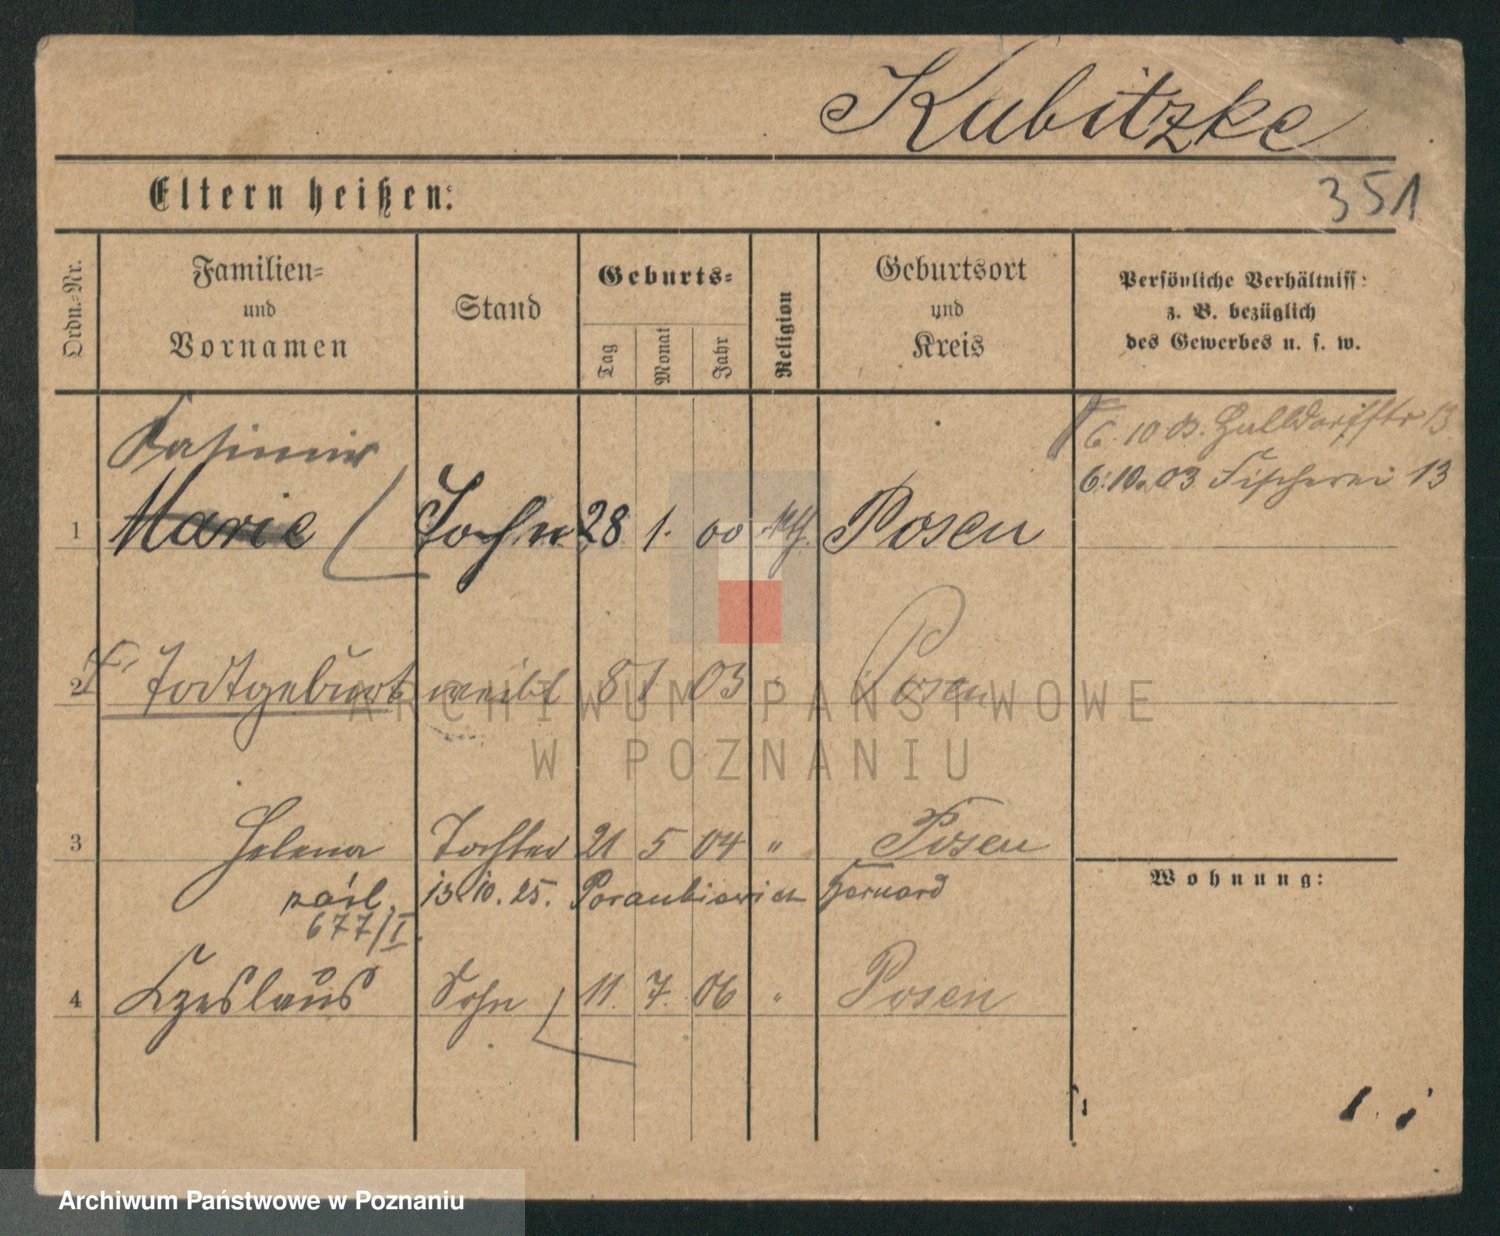 Kubitzke
Eltern heißen:
351
Ordn.-Nr.
Familien-
und
Vornamen
Stand
Geburts-
Tag
Monat
Jahr
Religion
Geburtsort
und
Kreis
Persönliche Verhältniss:
z. B. bezüglich
des Gewerbes u. s. w.
Kasimir
6. 10 03. 13
6. 10. 03 Fischerei 13
1 Marie Sohn 28 1. 00 Posen
2 Todtgeburt weibl 8 1 03 Posen
ARCHIWUM PAŃSTWOWE
W POZNANIU
3 Helena Tochter 21 5 04 " Posen
zaśl. 13 10. 25.
677/I.
Wohnung:
4 Czeslaus Sohn 11. 7. 06 " Posen
Archiwum Państwowe w Poznaniu